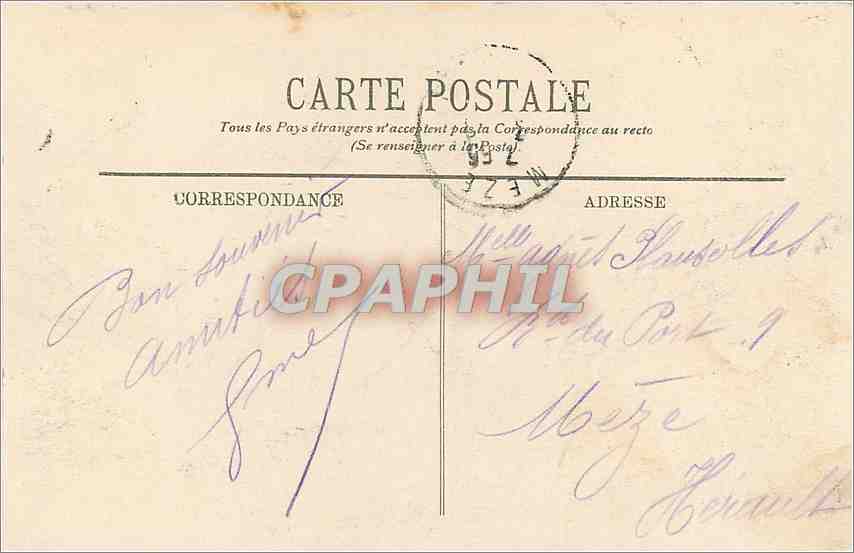 CARTE POSTALE
Tous les Pays étrangers n'acceptent pas la Correspondance au recto
(Se renseigner à la Poste).
MEZE
CORRESPONDANCE
ADRESSE
Bon Souvenir
Amitiés
CPAPHIL
Melle agnès
Rue du Port 9
Mèze
Hérault